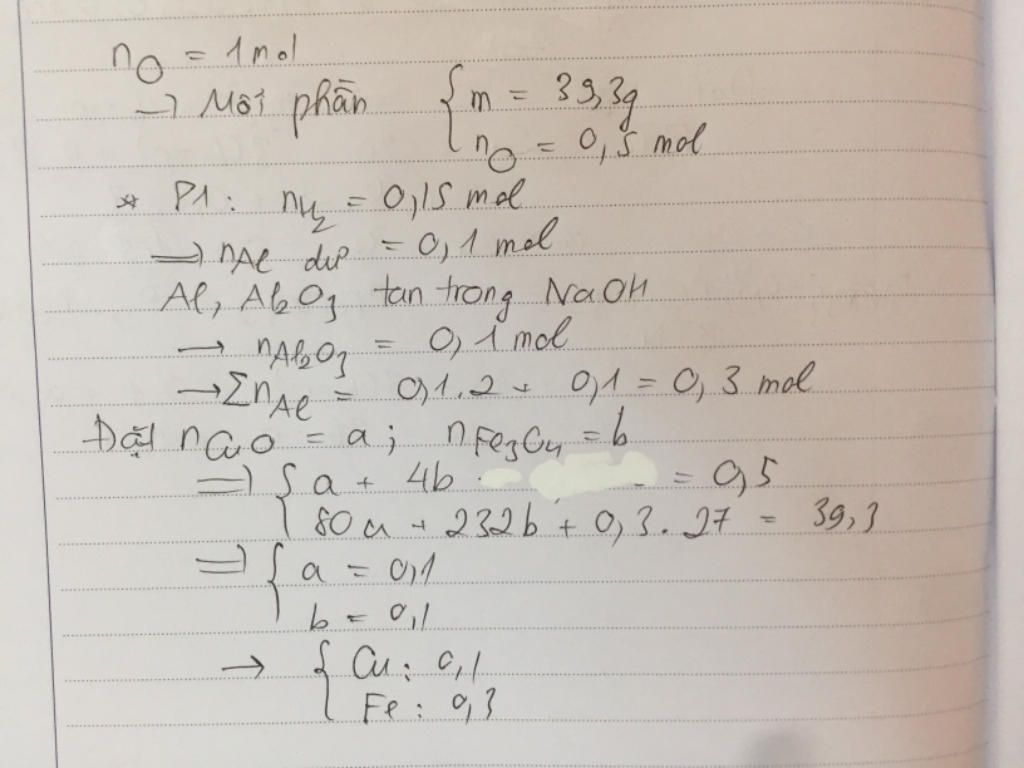 nO = 1 mol
→ Mỗi phần { m = 39,3g
nO = 0,5 mol
* P1: nH2 = 0,15 mol
⇒ nAl dư = 0,1 mol
Al, Al2O3 tan trong NaOH
→ nAl2O3 = 0,1 mol
→ ΣnAl = 0,1.2 + 0,1 = 0,3 mol
Đặt nCuO = a; nFe3O4 = b
⇒ { a + 4b = 0,5
80a + 232b + 0,3.27 = 39,3
⇒ { a = 0,1
b = 0,1
→ { Cu: 0,1
Fe: 0,3